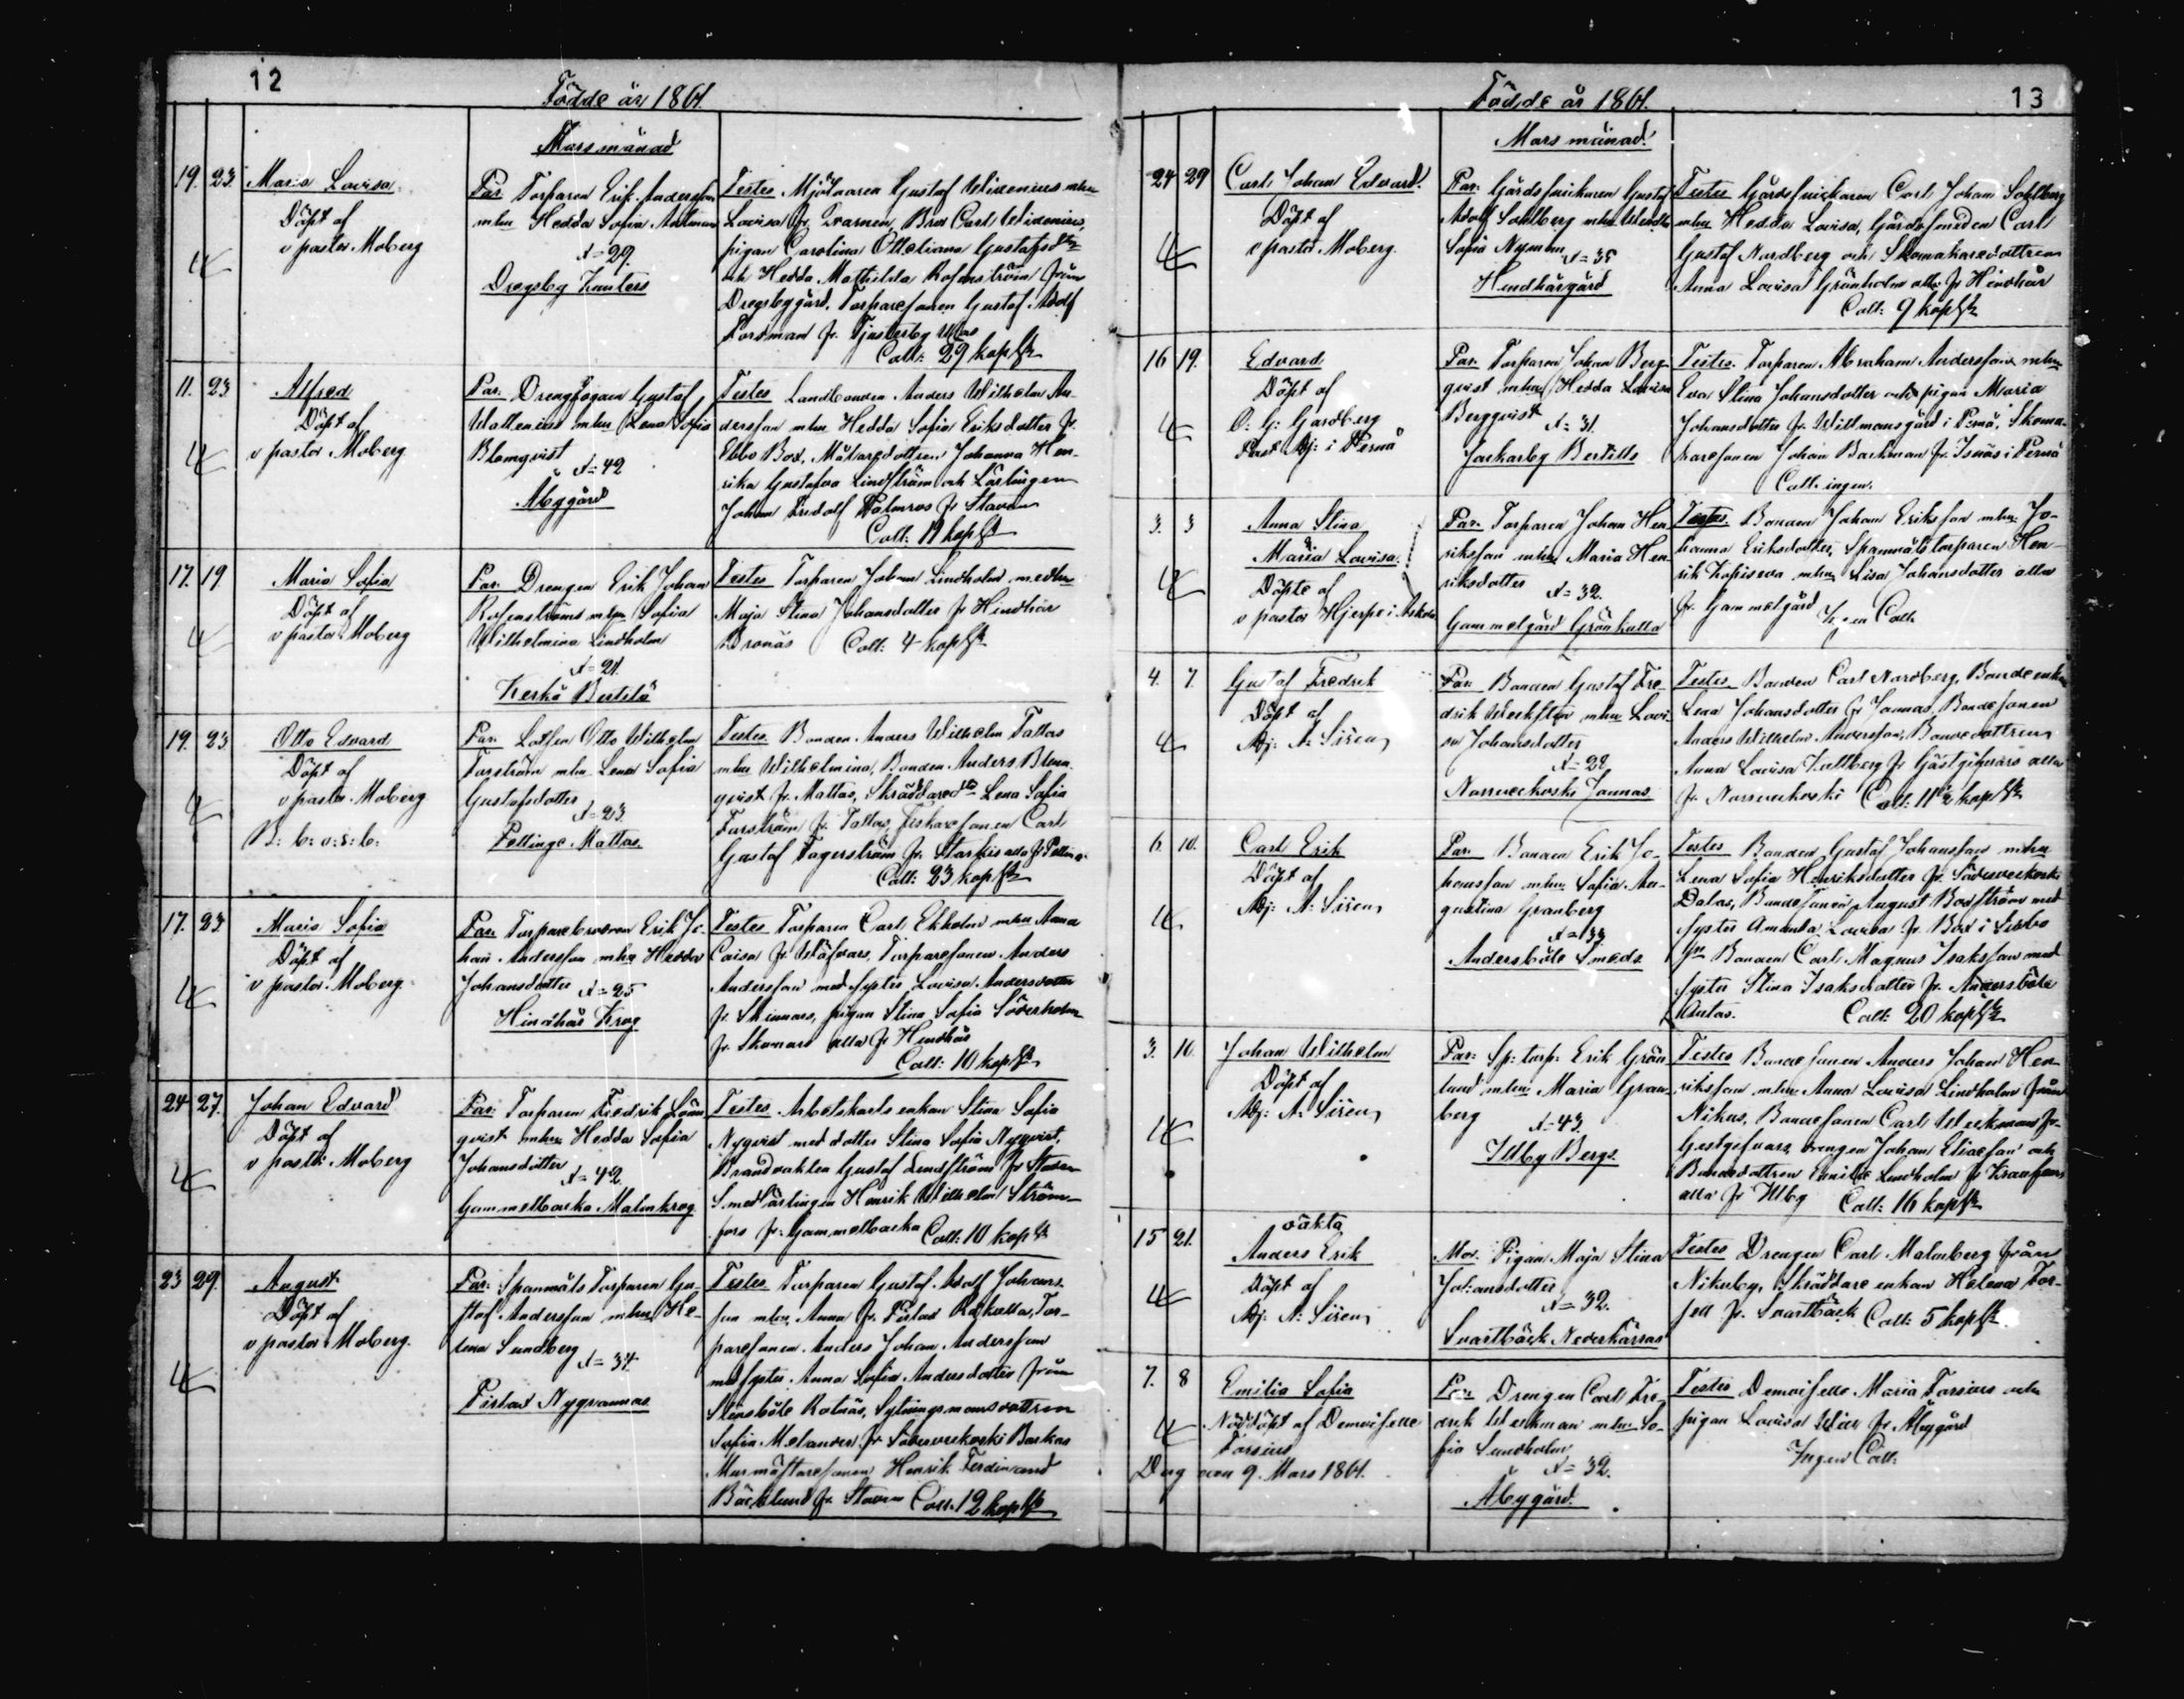 12
Födde år 1861.
Mars månad
19. 23. Maria Lovisa.
Döpt af
v pastor Moberg
Par. Torparen Erik Andersson
mhu Hedda Sofia
Æ= 29.
Dregsby Kanters
Testes Mjölnaren Gustaf Widenius mhu
Lovisa fr. Qvarnen, Bror Carl Widenius,
pigan Carolina Ottiliana Gustafsdtr
och Hedda Mathilda Rosenström från
Dregsbygård, Torparesonen Gustaf Adolf
Forsman fr. Tjusterby
Coll: 29 kop Sr
11. 23 Alfred
Döpt af
v pastor Moberg
Par. Drengfogden Gustaf
Wallenius mhu Lena Sofia
Blomqvist
Æ= 42
Åbygård
Testes Landbonden Anders Wilhelm An-
dersson mhu Hedda Sofia Eriksdotter fr.
Ebbo Box, Målaredottren Johanna Hen-
rika Gustafva Lindström och Lärlingen
Johan Fridolf Palmros fr Staden
Coll: 11 kop Sr
17. 19 Maria Sofia
Döpt af
v pastor Moberg
Par. Drengen Erik Johan
Rosenströms mhu Sofia
Wilhelmina Lindholm
Æ= 21.
Kerkö Bertilä
Testes Torparen Johan Lindholm medhu
Maja Stina Johansdotter fr Hindhår
Bronäs Coll: 4 kop Sr
19. 23 Otto Edvard
Döpt af
v pastor Moberg
Par. Lotsen Otto Wilhelm
Forström mhu Lena Sofia
Gustafsdotter
Æ= 23.
Pellinge Mattas.
Testes. Bonden Anders Wilhelm Tallas
mhu Wilhelmina, Bonden Anders Blom-
qvist fr. Mattas, Skräddared Lena Sofia
Furström fr. Tallas, fiskaresonen Carl
Gustaf Fagerström fr. Starkis alla fr Pelling.
Coll: 23 kop Sr
17. 23. Maria Sofia
Döpt af
v pastor Moberg
Par. Torparebroren Erik Jo-
han Andersson mhu Hedda
Johansdotter Æ= 25
Hindhår Krog
Testes Torparen Carl Ekholm mhu Anna
Caisa fr. Wäfvars, Torparesonen Anders
Andersson med syster Lovisa Andersdotter
fr. Skinnars, pigan Stina Sofia Söderholm
fr. Skomars alla fr Hindhår
Coll: 10 kop Sr
24 27. Johan Edvard
Döpt af
v pastor Moberg
Par. Torparen Fredrik Lönn-
qvist mhu Hedda Sofia
Johansdotter
Æ= 42.
Gammelbacka Malmkrog
Testes. Arbetskarlsenkan Stina Sofia
Nyqvist med dotter Stina Sofia Nyqvist,
Brandvakten Gustaf Lindström fr Staden
Smedlärlingen Henrik Wilhelm Ström-
fors fr: Gammelbacka Coll: 10 kop Sr
23 29. August
Döpt af
v pastor Moberg.
Par: Spanmåls Torparen Gu-
staf Andersson mhu He-
lena Sundberg
Æ= 34.
Pirlax Nygrannas
Testes. Torparen Gustaf Adolf Johans-
son mhu Anna fr. Pirlax Rökulla, Tor-
paresonen Anders Johan Andersson
med syster Anna Sofia Andersdotter från
Stensböle Ratnäs, Sytningsmansdottren
Sofia Melander fr. Söderveckoski Backas
Murmästaresonen Henrik Ferdinand
Bäcklund fr. Staden Coll. 12 kop Sr

13
Födde år 1861.
Mars månad.
24 29 Carl Johan Edvard.
Döpt af
v pastor Moberg.
Par. Gårdssnickaren Gustaf
Adolf Sohlberg mhu
Sofia Nyman Æ= 35
Hindhårgård
Testes Gårdssnickaren Carl Johan Sohlberg
mhu Hedda Lovisa, Gårdssmeden Carl
Gustaf Nordberg och Skomakaredottren
Anna Lovisa Grönholm alla fr Hindhår
Coll: 9 kop Sr
16 19. Edvard
Döpt af
O. G: Gardberg
Past Adj: i Pernå
Par. Torparen Johan Berg-
qvist mhu Hedda Lovisa
Bergqvist
Æ= 31.
Jackarby Bertills
Testes. Torparen Abraham Andersson mhu
Eva Stina Johansdotter och pigan Maria
Johansdotter fr. Willmansgård i Pernå, Skoma-
karesonen Johan Backman fr. Isnäs i Pernå
Coll. ingen.
3. 3 Anna Stina
&
Maria Lovisa.
Döpte af
v pastor Hjerpe i Askola
Par. Torparen Johan Hen-
riksson mhu Maria Hen-
riksdotter
Æ= 32.
Gammelgård Grönkulla
Testes. Bonden Johan Eriksson mhu Jo-
hanna Eriksdotter, Spanmålstorparen Hen-
rik mhu Lisa Johansdotter alla
fr. Gammelgård Ingen Coll.
4. 7. Gustaf Fredrik
Döpt af
Adj: A: Sirén
Par. Bonden Gustaf Fre-
drik Weckström mhu Lovi-
sa Johansdotter
Æ= 28
Norrveckoski Jannas
Testes Bonden Carl Nordberg, Bondeenkan
Lena Johansdotter fr Jannas, Bondesonen
Anders Wilhelm Andersson, Bondedottren
Anna Lovisa Kullberg fr Gästgifvars alla
fr. Norrveckoski Coll: 11½ kop Sr
6. 10. Carl Erik
Döpt af
Adj: A: Sirén
Par. Bonden Erik Jo-
hansson mhu Sofia Au-
gustina Granberg
Æ= 33
Andersböle Smeds
Testes Bonden Gustaf Johansson mhu
Lena Sofia Henriksdotter fr. Söderveckoski
Dalas, Bondesonen August Boström med
syster Amanda Lovisa fr. Box i Sibbo
Bonden Carl Magnus Isaksson med
syster Stina Isaksdotter fr. Andersböle
Antas. Coll: 20 kop Sr
3. 10. Johan Wilhelm
Döpt af
Adj: A: Sirén
Par: Sp: torp: Erik Grön-
lund mhu Maria Gran-
berg
Æ= 43.
Illby Bergs.
Testes Bondesonen Anders Johan Hen-
riksson mhu Anna Lovisa Lindholm från
Nikus, Bondesonen Carl Weckman fr.
Gestgifvars, drengen Johan Eliaesson och
Bondedottren Emilie Lindholm fr
alla fr Illby Coll: 16 kop Sr
15 21. oäkta
Anders Erik
Döpt af
Adj: A: Sirén
Mor. Pigan Maja Stina
Johansdotter
Æ= 32.
Svartbäck Nederkärras
Testes Drengen Carl Malmberg från
Nikuby, Skräddareenkan Helena For-
sell fr. Svartbäck Coll: 5 kop Sr
7. 8 Emilia Sofia
Nöddöpt af Demoiselle
Forsius
Dog den 9. Mars 1861.
Par. Drengen Carl Fre-
drik Weckman mhu So-
fia Lundholm
Æ= 32.
Åbygård.
Testes Demoiselle Maria Forsius och
pigan Lovisa fr. Åbygård
Ingen Coll.